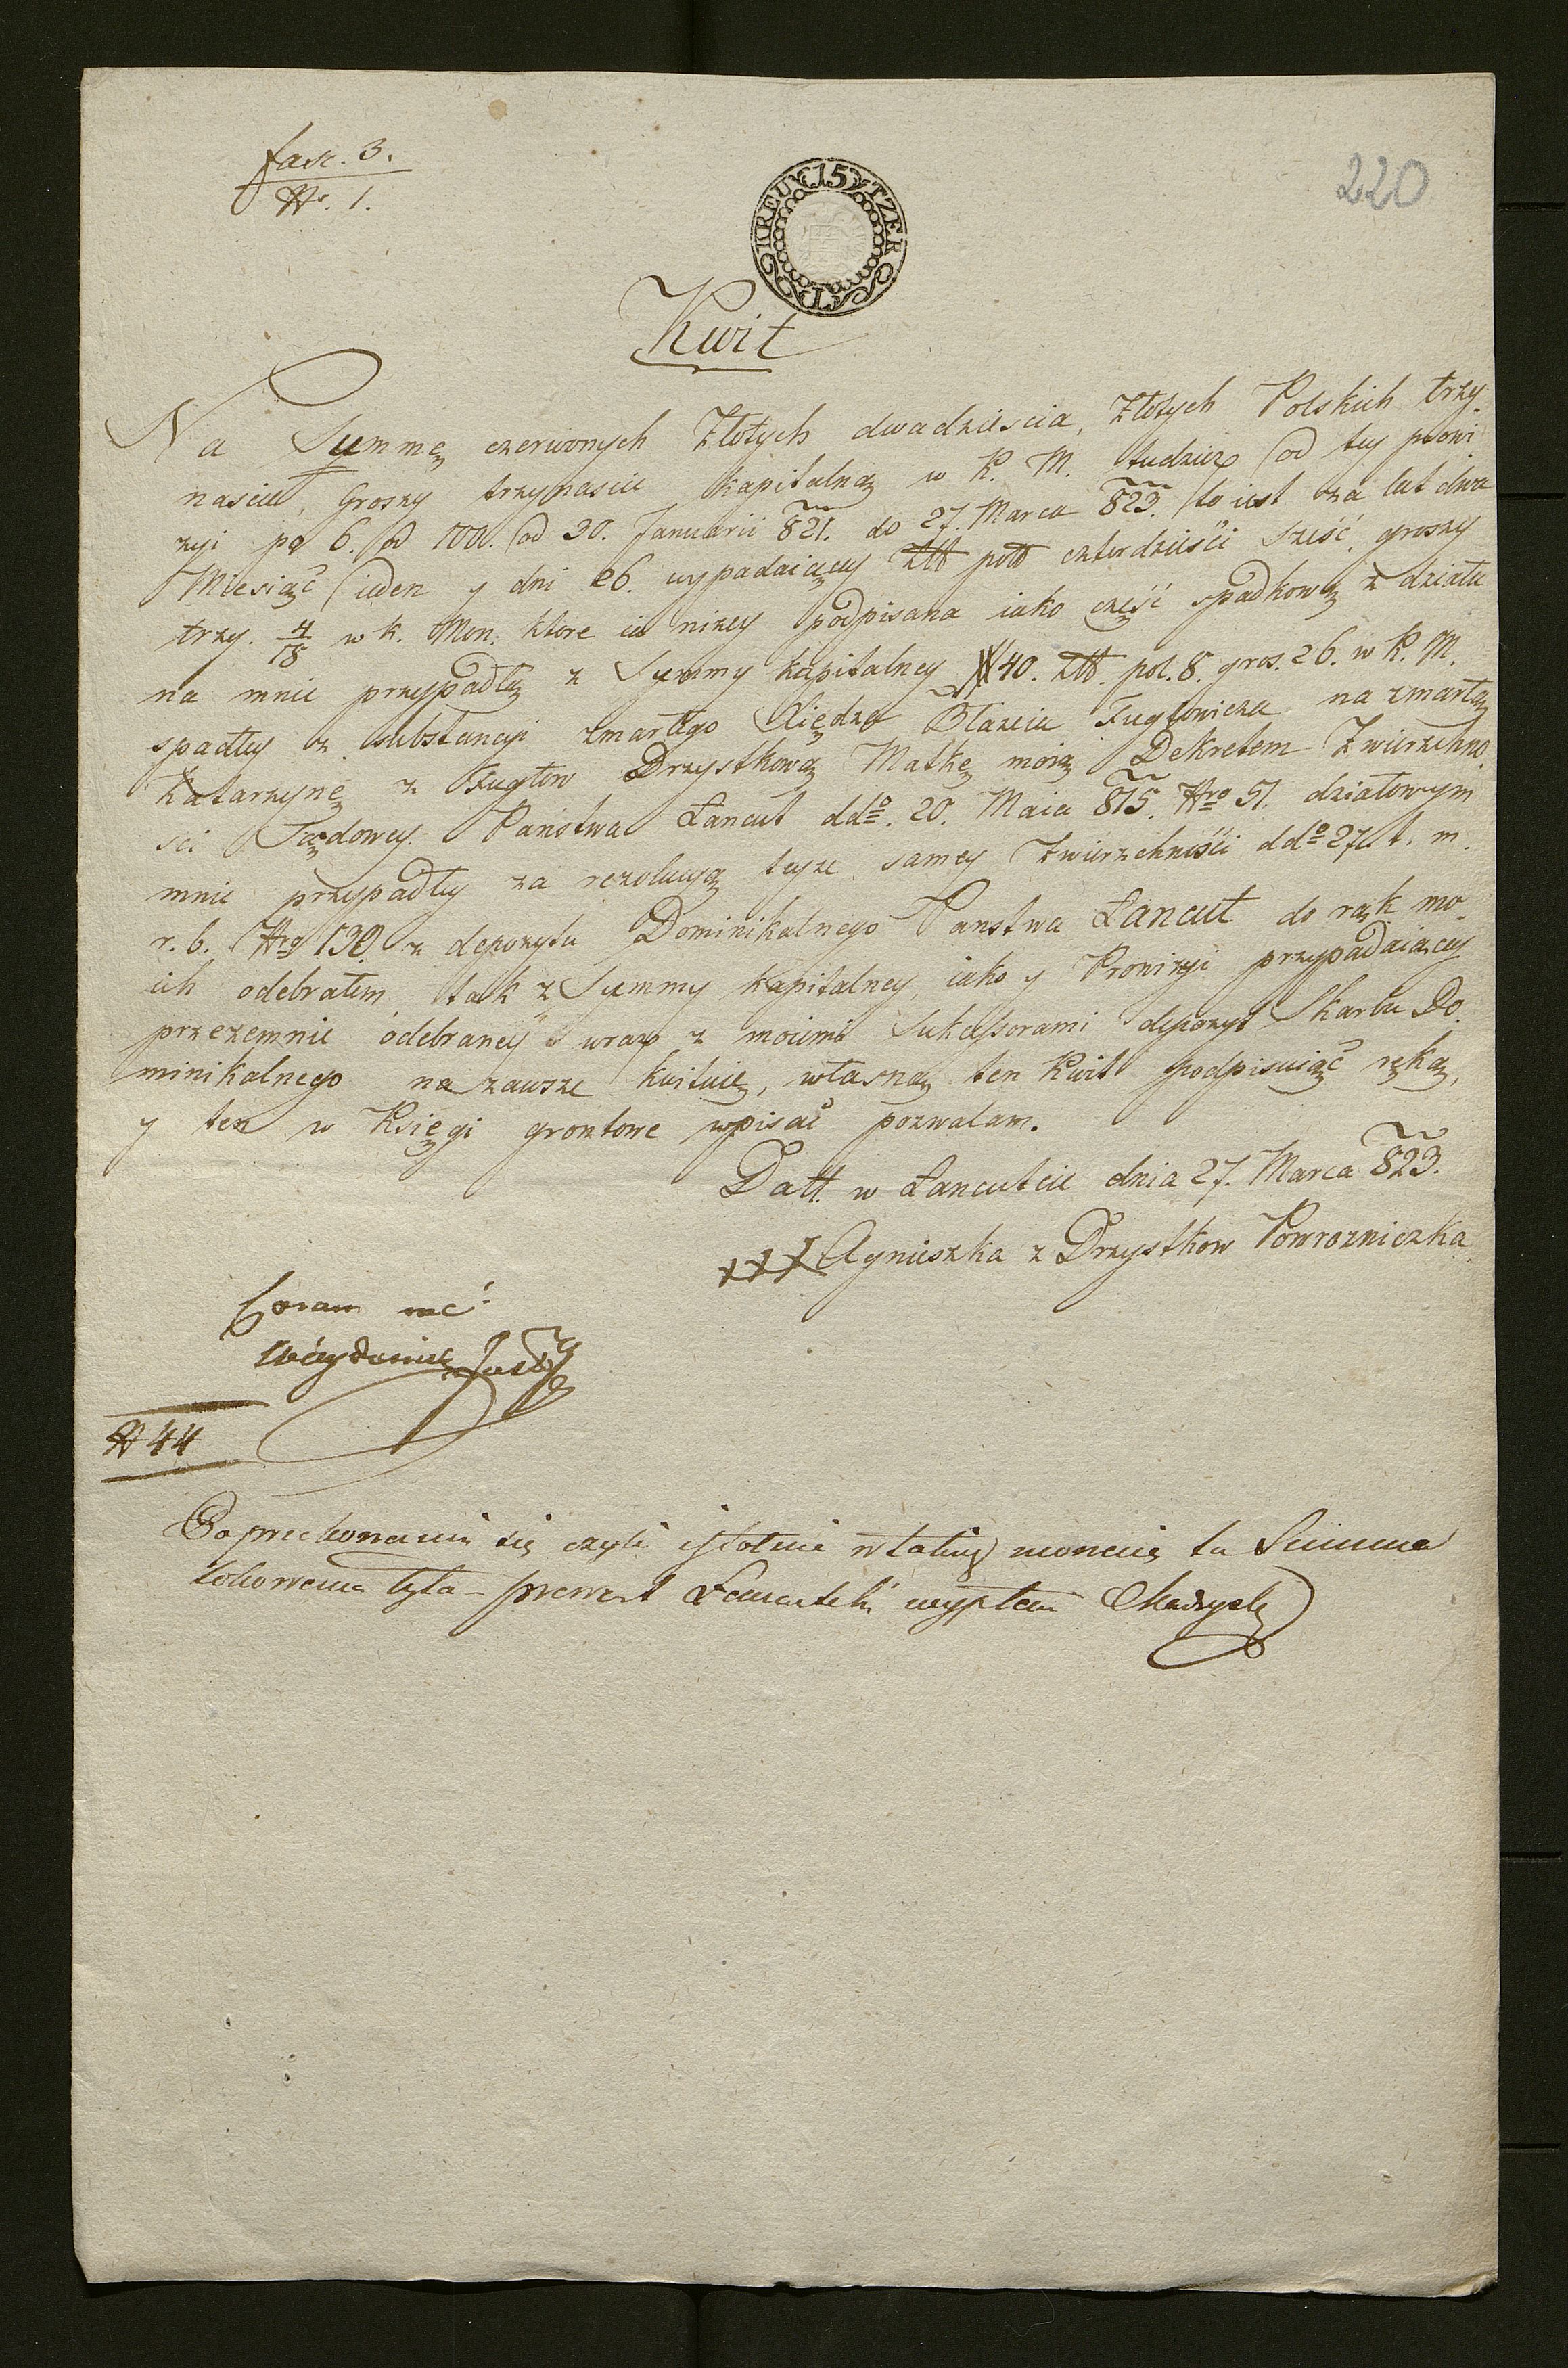 fasc. 3.
Nr. 1.
220
15 KREUTZER C.M.
Kwit
Na Summę czerwonych Złotych dwadzieścia, Złotych Polskich trzy-
naście, Groszy trzynaście kapitalną w K. M. tudzież od tey prowi
zyi po 6. od 100. od 30. Januarii 821. do 27. Marca 823. to iest za lat dwa
Miesiąc ieden y dni 26. wypadaiącey Złł poll czterdzieści sześć, groszy
trzy. 4/18 w k. Mon. ktore ia niżey podpisana iako część spadkową z działu
na mnie przypadłą z Summy kapitalney # 40. złł. pol. 8. gros. 26. w K. M.
spadłey z substancyi zmarłego Xiędza Błażeia Fuglewicza na zmarłą
Katarzynę z Fuglow Drzystkową Matkę moią Dekretem Zwierzchno
ści Sądowey Państwa Łancut ddo. 20. Maia 815. Nro 51. działowym
mnie przypadłey za rezolucyą teyże samey Zwierzchności ddo 27. t. m.
r. b. Nro 130. z depozytu Dominikalnego Panstwa Łancut do rąk mo-
ich odebrałem tak z Summy kapitalney, iako y Prowizyi przypadaiącey
przezemnie odebraney wraz z moiemi Sukcessorami depozyt Skarbu Do-
minikalnego na zawsze kwituię, własną ten Kwit podpisuiąc ręką,
y ten w Księgi grontowe wpisać pozwalam.
Datt. w Łancutcie dnia 27. Marca 823.
+++ Agnieszka z Drzystkow Powrozniczka
Coram me
N 44
Po przekonaniu się czyli istotnie w takiey monecie ta Summa
lokowana była – prowent Łancutski wypłaci